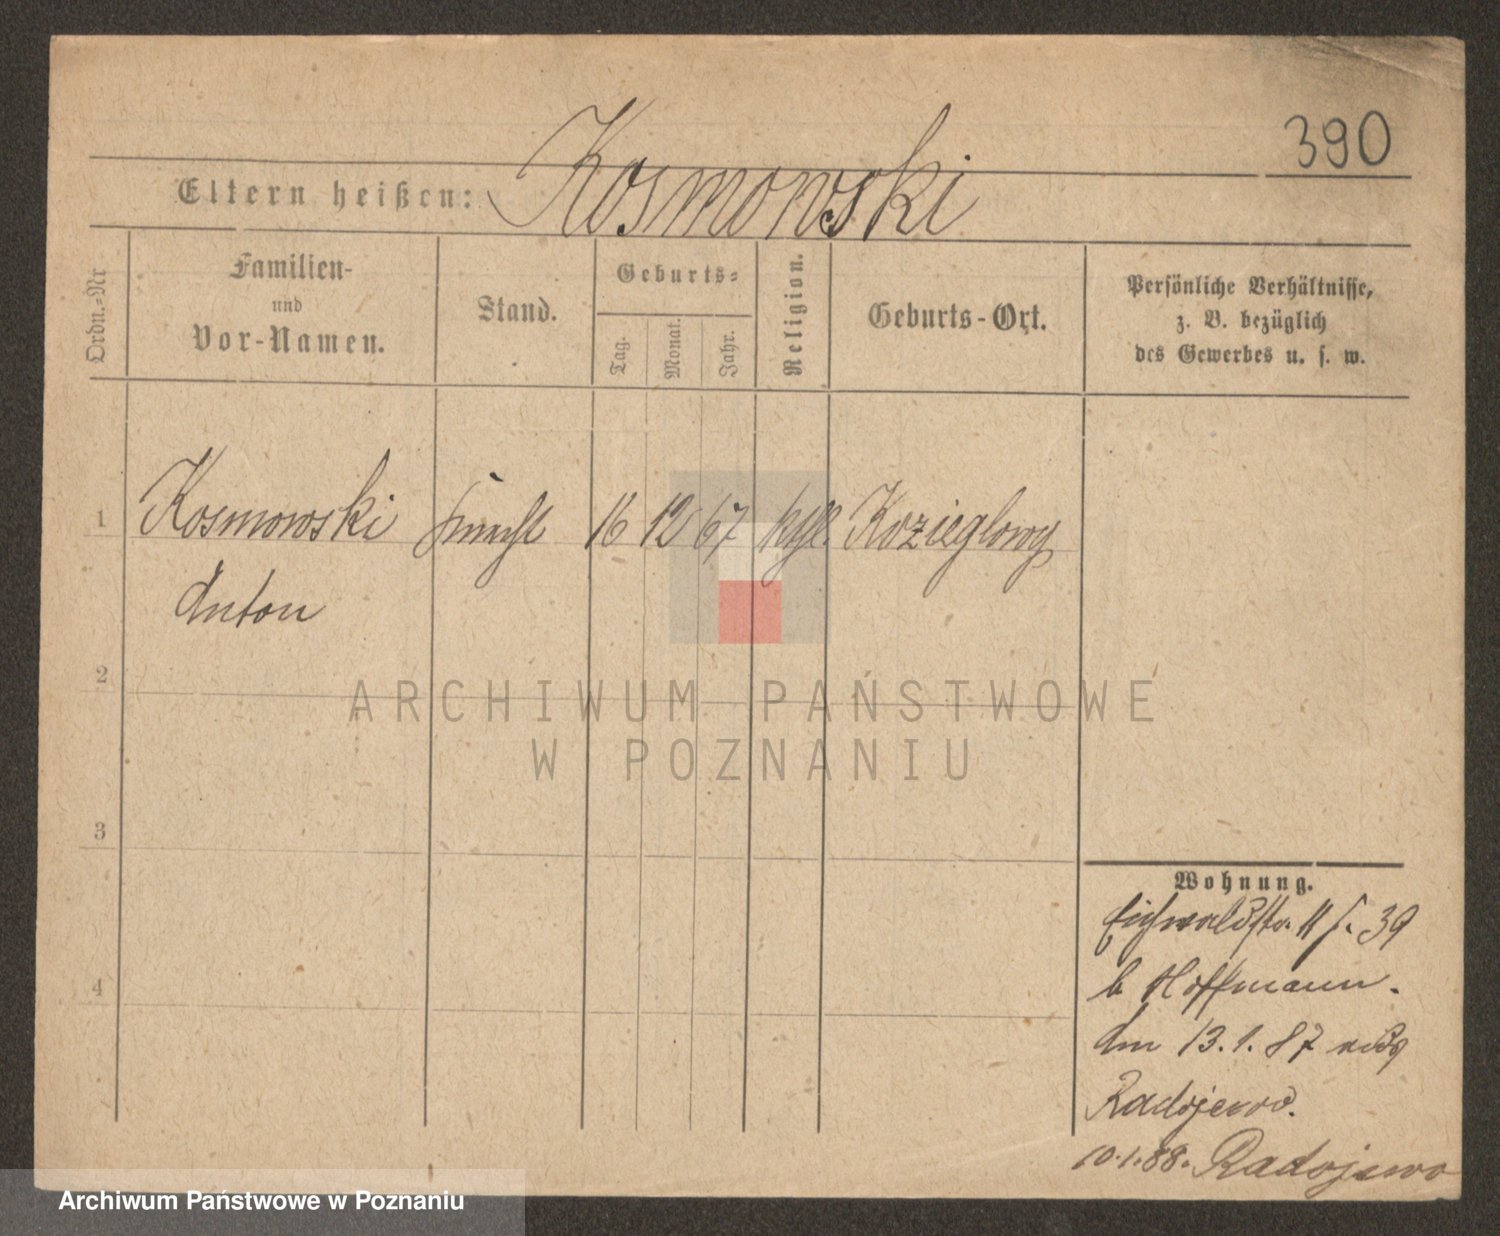 390
Eltern heißen: Kosmowski
Ordn.=Nr
Familien-
und
Vor-Namen.
Stand.
Geburts=
Tag.
Monat.
Jahr.
Religion.
Geburts-Ort.
Persönliche Verhältnisse,
z. B. bezüglich
des Gewerbes u. s. w.
1 Kosmowski Knecht 16 12 67 kth. Kozieglowy
Anton
2
ARCHIWUM PAŃSTWOWE
W POZNANIU
3
Wohnung.
Eichwaldstr. 39
b Hoffmann.
4
am 13.1.87
Radojewo.
10.1.88. Radojewo
Archiwum Państwowe w Poznaniu